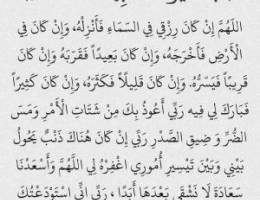 اللَّهُمَّ إِنْ كَانَ رِزْقِي فِي السَّمَاءِ فَأَنْزِلْهُ، وَإِنْ كَانَ فِي
الْأَرْضِ فَأَخْرِجْهُ، وَإِنْ كَانَ بَعِيداً فَقَرِّبْهُ وَإِنْ كَانَ
قَرِيباً فَيَسِّرْهُ. وَإِنْ كَانَ قَلِيلاً فَكَثِّرْهُ، وَإِنْ كَانَ كَثِيرًا
فَبَارِكْ لِي فِيهِ رَبِّي أَعُوذُ بِكَ مِنْ شَتَاتِ الْأَمْرِ وَمَسَ
الضُّرِّ وَ ضِيقِ الصَّدْرِ رَبِّي إِنْ كَانَ هُنَاكَ ذَنْبٌ يَحُولُ
بَيْنِي وَبَيْنَ تَيْسِيرِ أُمُورِي اغْفِرْهُ لِي اللَّهُمَّ وَأَسْعِدْنَا
سَعَادَةً لَا نَشْقَى بَعْدَهَا أَبَدًا ، رَبِّي إِنِّي اسْتَوْدَعْتُكَ